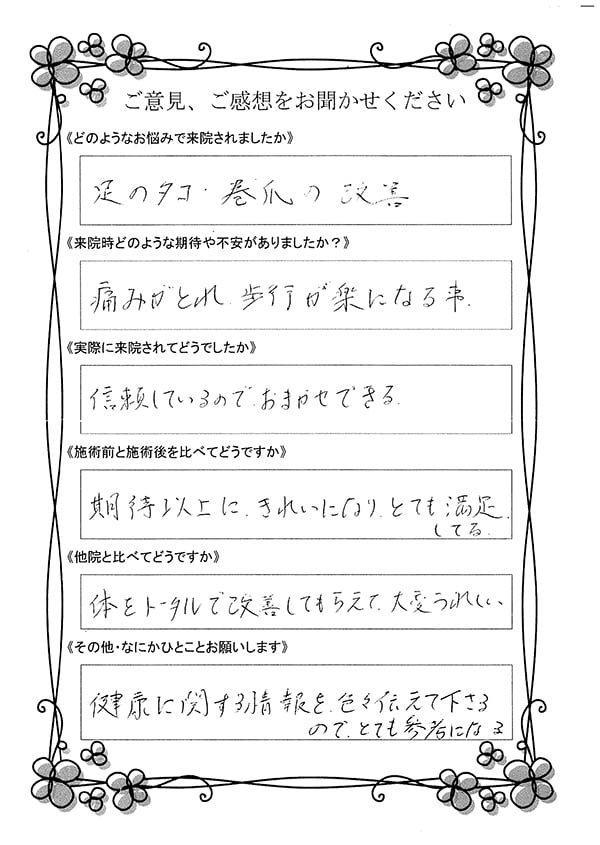 ご意見、ご感想をお聞かせください
《どのようなお悩みで来院されましたか》
足のタコ・巻爪の改善
《来院時どのような期待や不安がありましたか？》
痛みがとれ、歩行が楽になる事。
《実際に来院されてどうでしたか》
信頼しているので、おまかせできる。
《施術前と施術後を比べてどうですか》
期待以上に、きれいになり、とても満足
してる。
《他院と比べてどうですか》
体をトータルで改善してもらえて、大変うれしい
《その他・なにかひとことお願いします》
健康に関する情報を、色々伝えて下さる
ので、とても参考になる